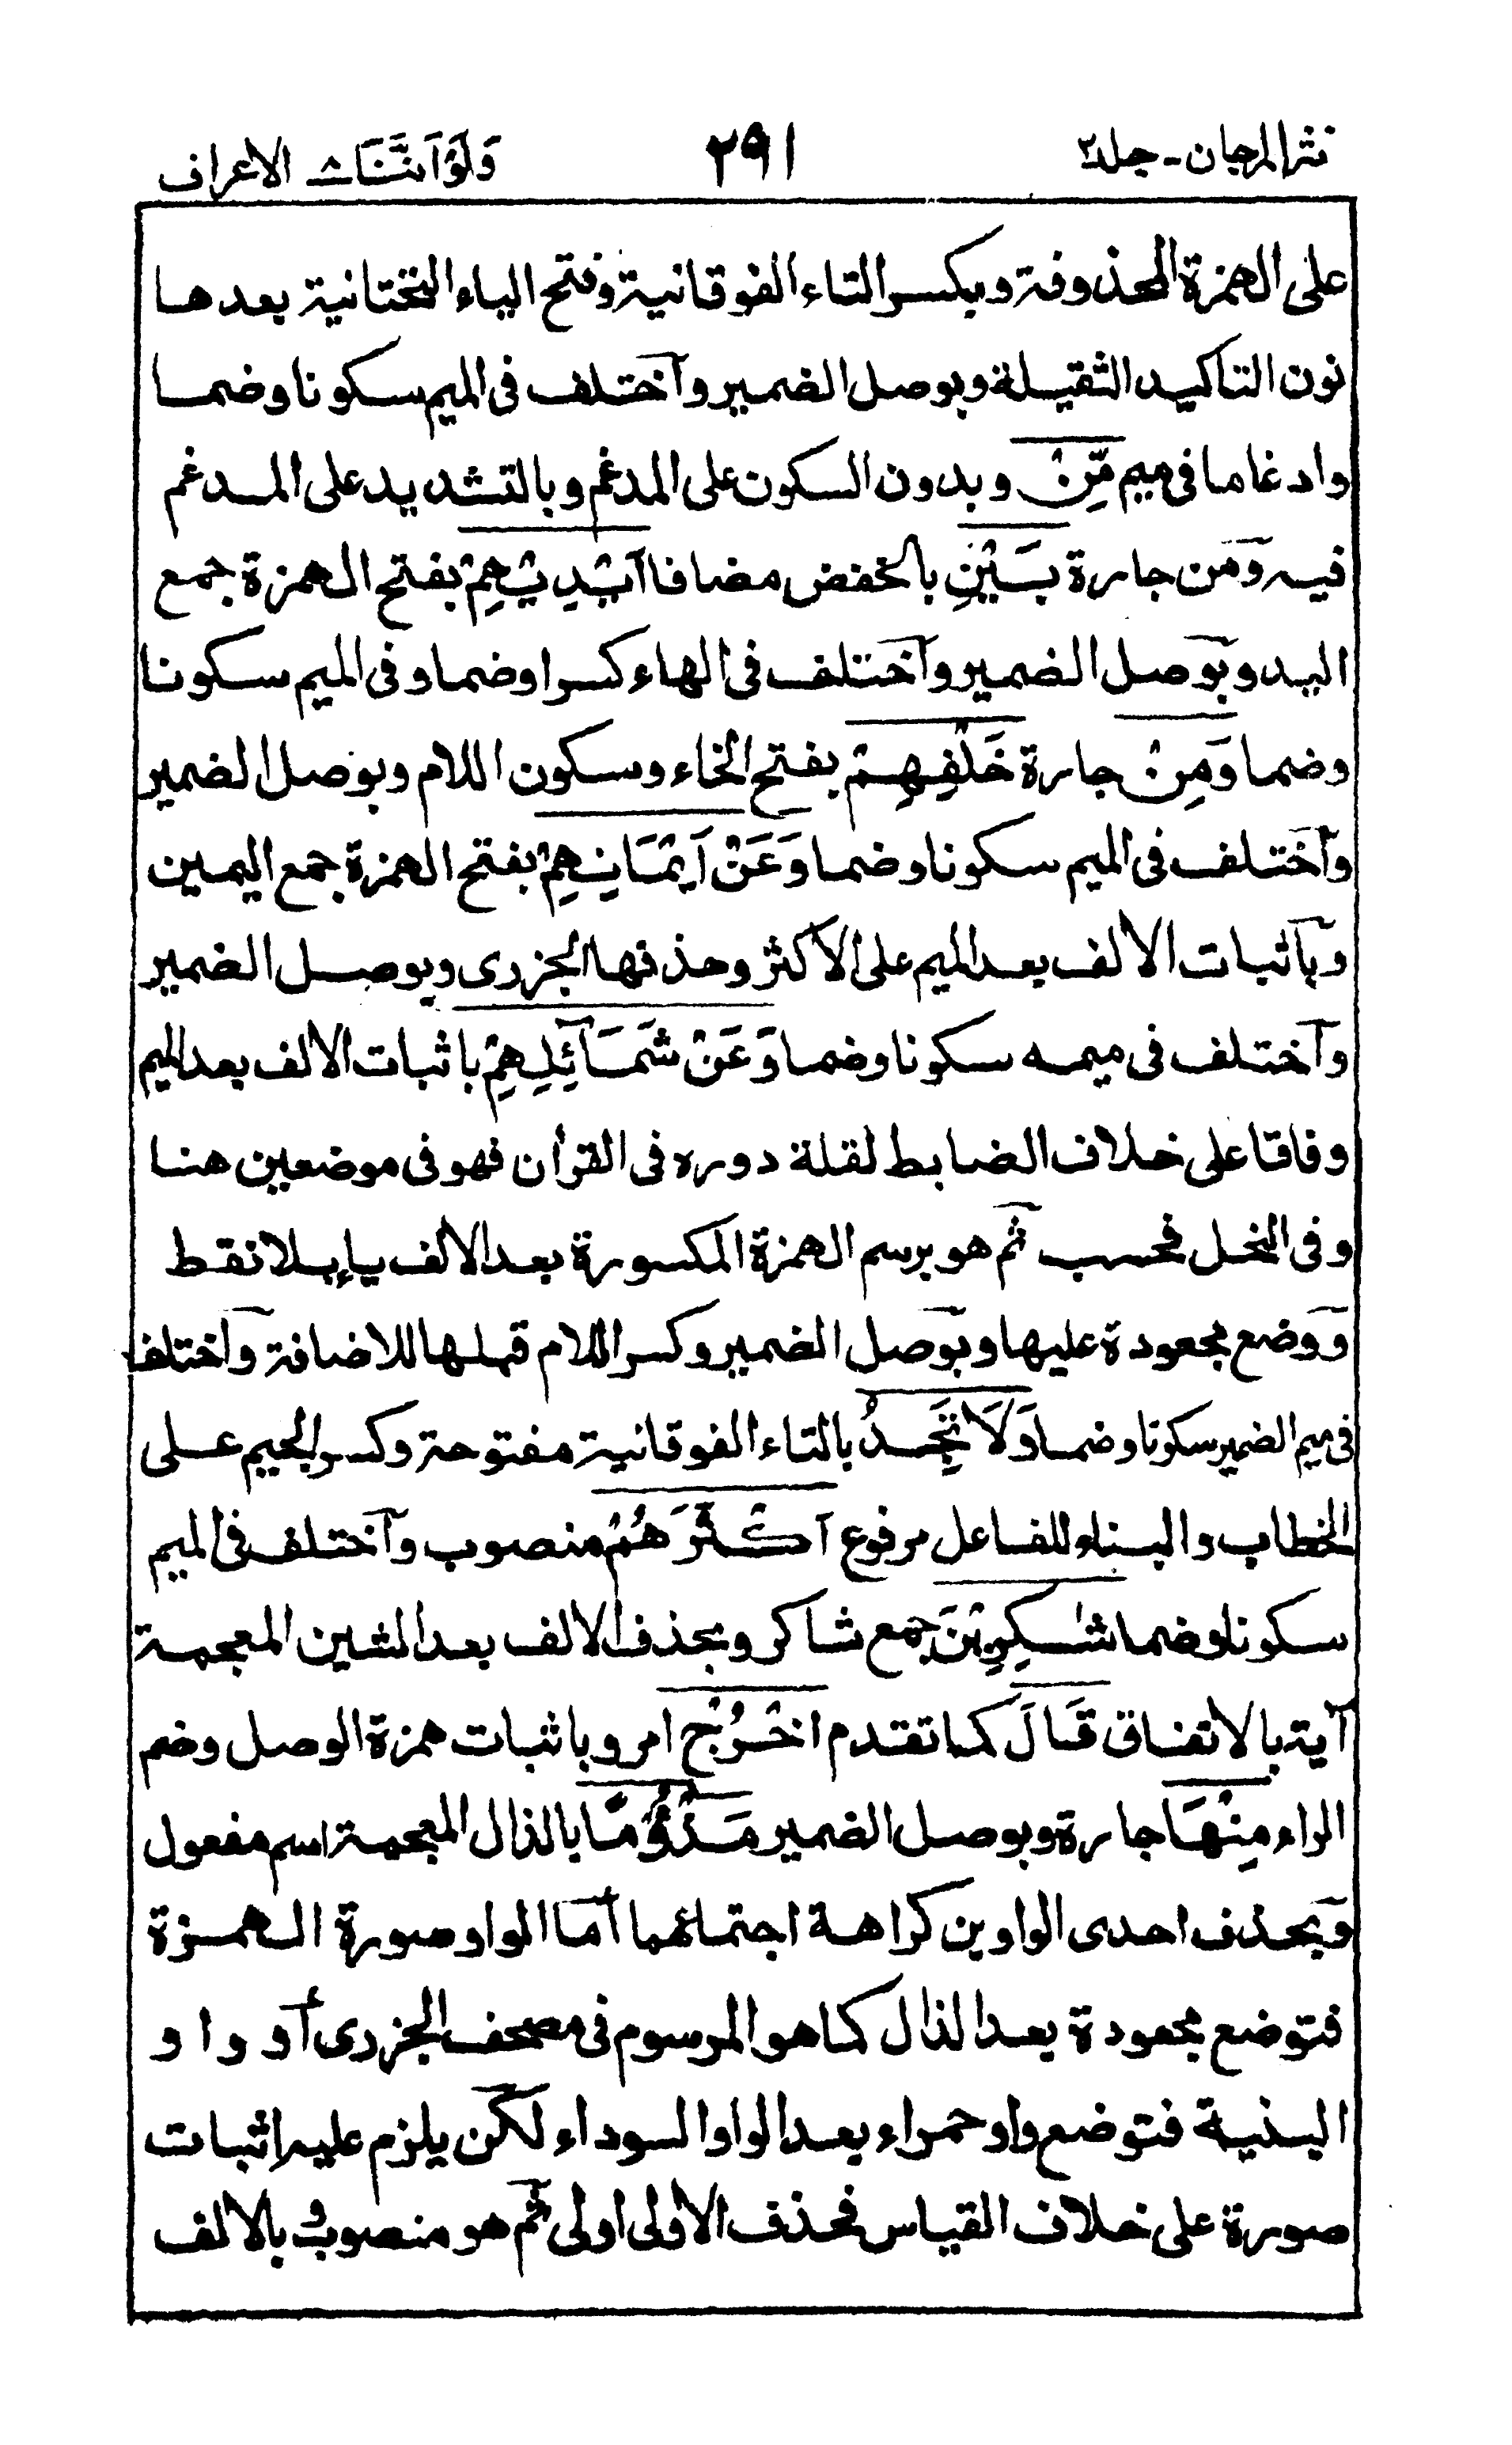 نثر المرجان - جلد ٢
٢٩١
وَلَوْ اَنَّنَا ــ الاعراف
على الهمزة المحذوفة وبكسر التاء الفوقانية وفتح الياء التحتانية بعدها
نون التاكيد الثقيلة وبوصل الضمير وآختلف فى الميم سكونا وضما
وادغاما فى ميم مِّنْ وبدون السكون على المدغم وبالتشديد على المدغم
فيه ومن جارة بَيْنِ بالخفض مضافا اَيْدِيْهِمْ بفتح الهمزة جمع
اليد وبوصل الضمير وآختلف فى الهاء كسرا وضما وفى الميم سكونا
وضما وَمِنْ جارة خَلْفِهِمْ بفتح الخاء وسكون اللام وبوصل الضمير
وآختلف فى الميم سكونا وضما وَعَنْ اَيْمَانِهِمْ بفتح الهمزة جمع اليمين
وبآثبات الالف بعد الميم على الاكثر وحذفها الجزرى وبوصل الضمير
وآختلف فى ميمه سكونا وضما وَعَنْ شَمَآئِلِهِمْ باثبات الالف بعد الميم
وفاقا على خلاف الضابط لقلة دوره فى القرأن فهو فى موضعين هنا
وفى النحل فحسب ثم هو برسم الهمزة المكسورة بعد الالف ياء بلا نقط
ووضع مجعودة عليها وبوصل الضمير وكسر اللام قبلها للاضافة وآختلف
فى ميم الضمير سكونا وضما وَلَا تَجِدُ بالتاء الفوقانية مفتوحة وكسر الجيم على
الخطاب والبناء للفاعل مرفوع اَكْثَرَهُمْ منصوب وآختلف فى الميم
سكونا وضما شٰكِرِيْنَ جمع شاكر وبحذف الالف بعد الشين المعجمة
آية بالاتفاق قَالَ كما تقدم اخْرُجْ امر وباثبات همزة الوصل وضم
الراء مِنْهَا جارة وبوصل الضمير مَذْءُوْمًا بالذال المعجمة اسم مفعول
وبحذف احدى الواوين كراهة اجتماعهما أما الواو صورة الهمزة
فتوضع مجعودة بعد الذال كما هو المرسوم فى مصحف الجزرى أو واو
البنية فتوضع واو حمراء بعد الواو السوداء لكن يلزم عليه اثبات
صورة على خلاف القياس فحذف الاولى اولى ثم هو منصوب وبالالف